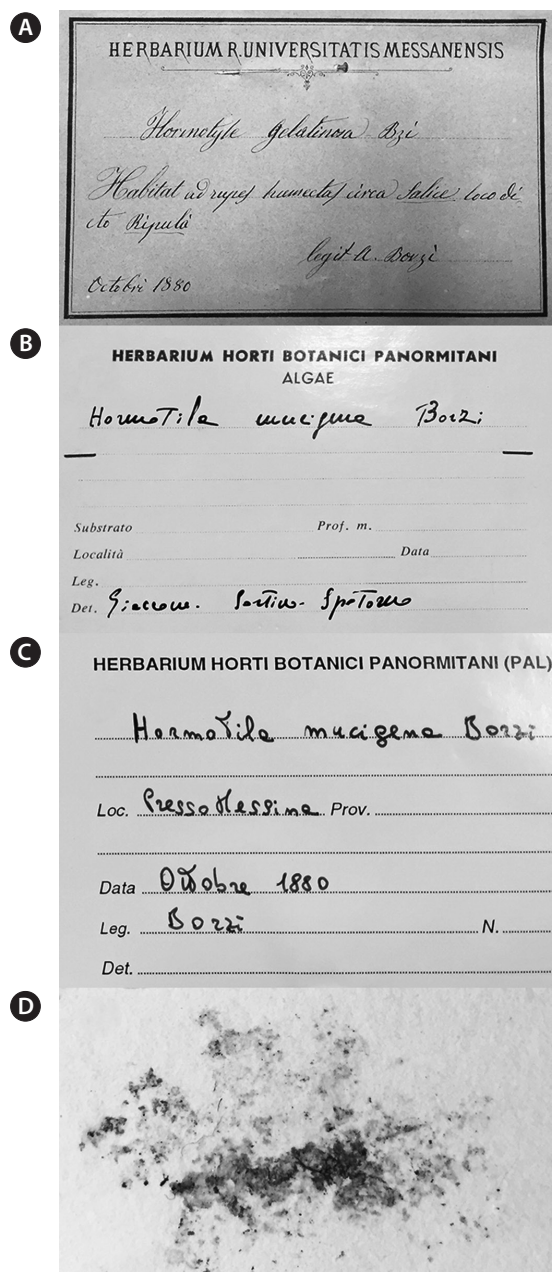 A
HERBARIUM R. UNIVERSITATIS MESSANENSIS
Hormotyle gelatinosa Bzì
Habitat ad rupes humectas circa Salice loco di
cto Ripula
legit A. Borzì
Octobri 1880
B
HERBARIUM HORTI BOTANICI PANORMITANI
ALGAE
HormoTila mucigena Borzi
Substrato Prof. m.
Località Data
Leg.
Det. Giaccone - Sortino -
C
HERBARIUM HORTI BOTANICI PANORMITANI (PAL)
HormoTila mucigena Borzi
Loc. Presso Messina Prov.
Data Ottobre 1880
Leg. Borzi N.
Det.
D